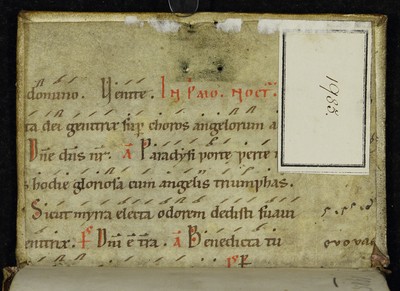 domino. Venite. In p̄mo. noct̄.
ta dei genitrix sup̄ choros angelorum a
Dn̄e dn̄s nr̄. a Paradysi porte per te n
s hodie gloriosa cum angelis triumphas.
Sicut myrra electa odorem dedisti suaui
enitrix. Dn̄i ē tr̄a. a Benedicta tu
euouae
1983.